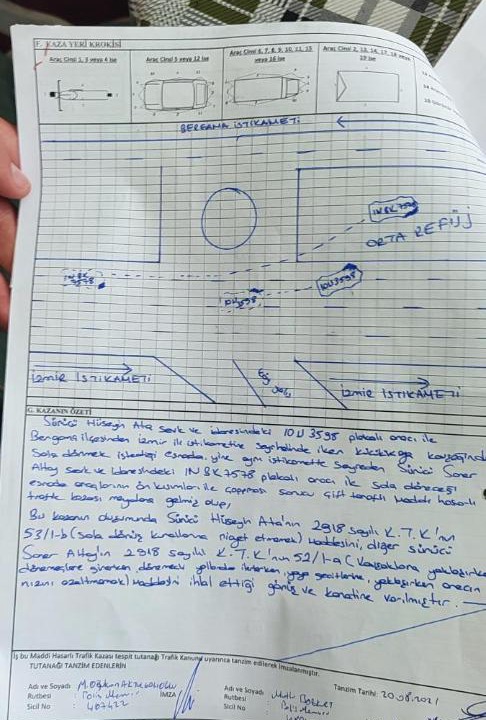 F. KAZA YERİ KROKİSİ
Araç Cinsi 1, 3 veya 4 ise
Araç Cinsi 5 veya 12 ise
Araç Cinsi 6, 7, 8, 9, 10, 11, 15
veya 16 ise
Araç Cinsi 2, 13, 14, 17, 18 veya
19 ise
BERGAMA İSTİKAMETİ
ORTA REFÜJ
10U3598
İzmir İSTİKAMETİ
İzmir İSTİKAMETİ
G. KAZANIN ÖZETİ
Sürücü Hüseyin Ata sevk ve idaresindeki 10 U 3598 plakalı aracı ile
Bergama ilçesinden izmir ili istikametine seyrinde iken
Sola dönmek istediği esnada, yine aynı istikamette seyreden Sürücü Soner
Altay sevk ve idaresindeki BK 7578 plakalı aracı ile sola döneceği
esnada araçların ön kısımları ile çarpması sonucu çift taraflı maddi hasarlı
trafik kazası meydana gelmiş olup,
Bu kazanın oluşumunda Sürücü Hüseyin Ata'nın 2918 sayılı K.T.K'nun
53/1-b (sola dönüş kurallarına riayet etmemek) maddesini, diğer sürücü
Soner Altay'ın 2918 sayılı K.T.K'nun 52/1-a (Kavşaklara yaklaşırken
dönemeçlere girerken, dönemeçli yollarda ilerlerken, yaya geçitlerine, yaklaşırken aracın
hızını azaltmamak) maddesini ihlal ettiği görüş ve kanaatine varılmıştır.
İş bu Maddi Hasarlı Trafik Kazası tespit tutanağı Trafik Kanunu uyarınca tanzim edilerek imzalanmıştır.
TUTANAĞI TANZİM EDENLERİN
Tanzim Tarihi: 20.08.2021
Adı ve Soyadı
Rütbesi Polis Memuru İMZA
Sicil No
Adı ve Soyadı
Rütbesi Polis Memuru
Sicil No